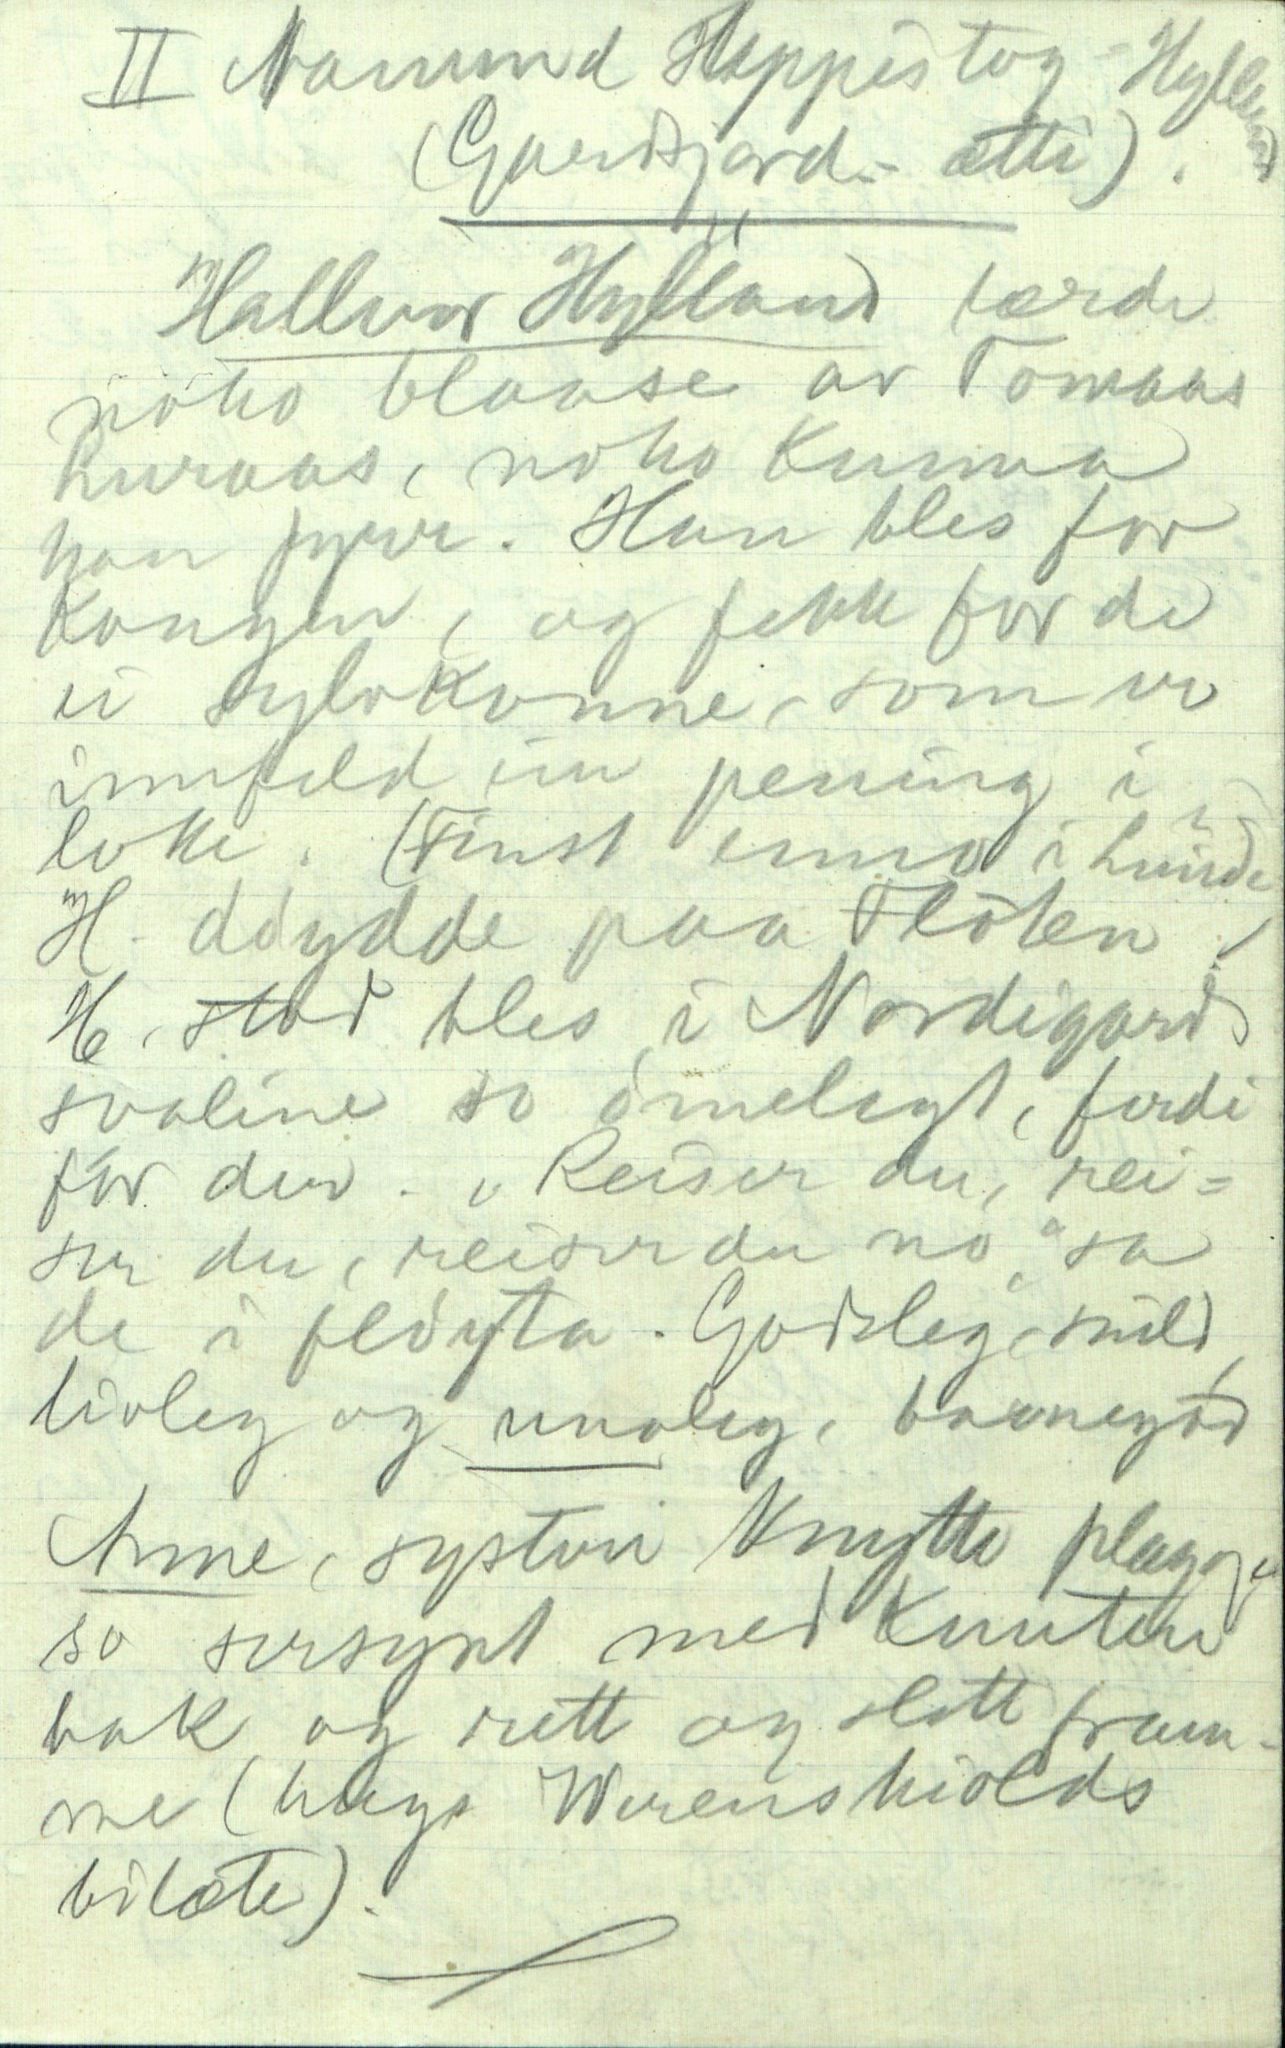 II Namund Häppestog - Hylland
(Gardsjord - ætti).
Hallvor Hylland lærde
nöko blaase av Tomaas
Luraas, noko kunna
han fyrr. Han bles for
Kongen, og fekk for de
ei sylvkanne, som va
innfeld ein pening i
loke. (Finst enno i Lunde
H. döydde paa Flöten)
H. stod bles i Nordigard
svaline so ömelegt, ferdi
för den. "Reiser du, rei=
ser du, reiser du no" sa
de i flöyta. Godsleg, snild
livleg og unaleg, barnegod
Anne, systeri knytte plagg
so sersynt med knuten
bak og rett og slett fram-
me (hugs Werenskiolds
bilæte).